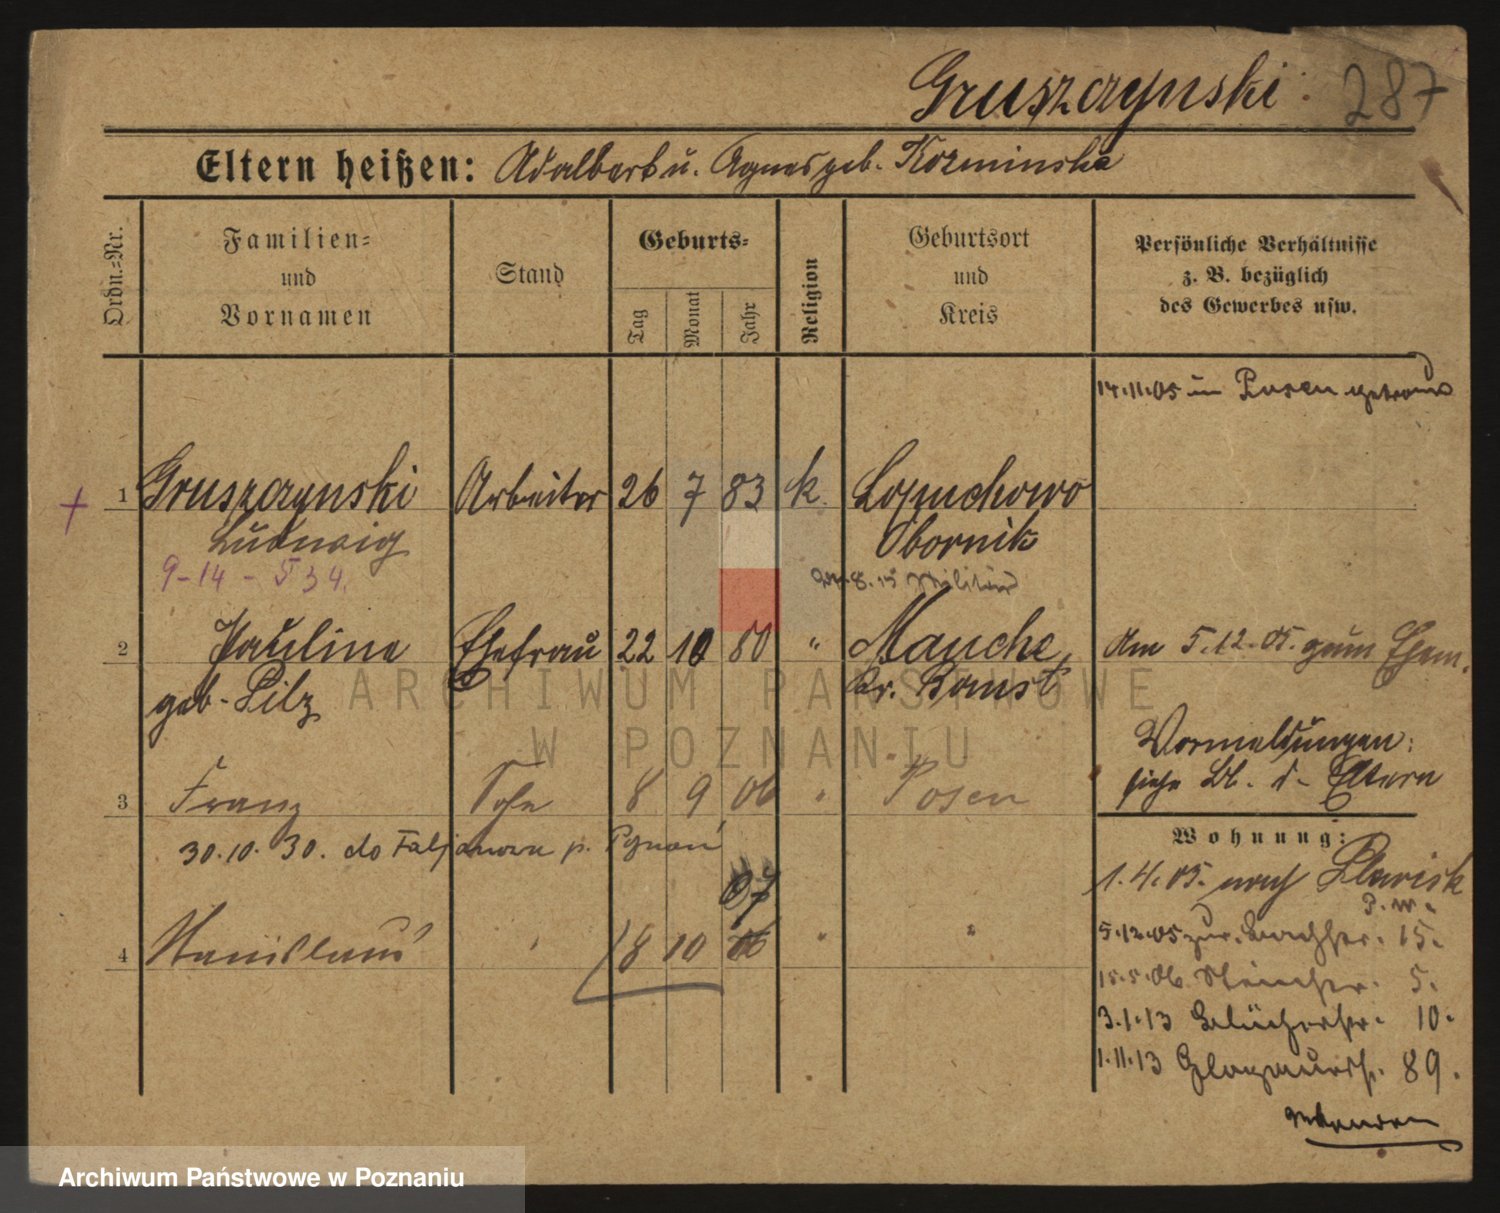 Gruszczynski. 287
Eltern heißen: Adalbert u. Agnes geb. Kozminska
Ordn.-Nr.
Familien-
und
Vornamen
Stand
Geburts-
Tag
Monat
Jahr
Religion
Geburtsort
und
Kreis
Persönliche Verhältnisse
z. B. bezüglich
des Gewerbes usw.
14.11.05 in Posen getraut
1 Gruszczynski Arbeiter 26 7 83 k. Lopuchowo
Ludwig Obornik
9-14-534.
8.15 Militär
2 Pauline Ehefrau 22 10 80 " Mauche,
geb. Pilz Kr. Bomst
Am 5.12.05. zum Ehem.
Vormeldungen:
siehe Bl. d. Eltern
3 Franz Sohn 8 9 06 " Posen
30.10.30. do p. Poznań
Wohnung:
1.4.05. nach Plewisk
P. W.
07
4 Stanislaus ' 18 10 06 " "
5.12.05 15.
15.5.06 5.
3.1.13 Blücherstr. 10.
1.11.13 Glogauerstr. 89.
ARCHIWUM PAŃSTWOWE
W POZNANIU
Archiwum Państwowe w Poznaniu